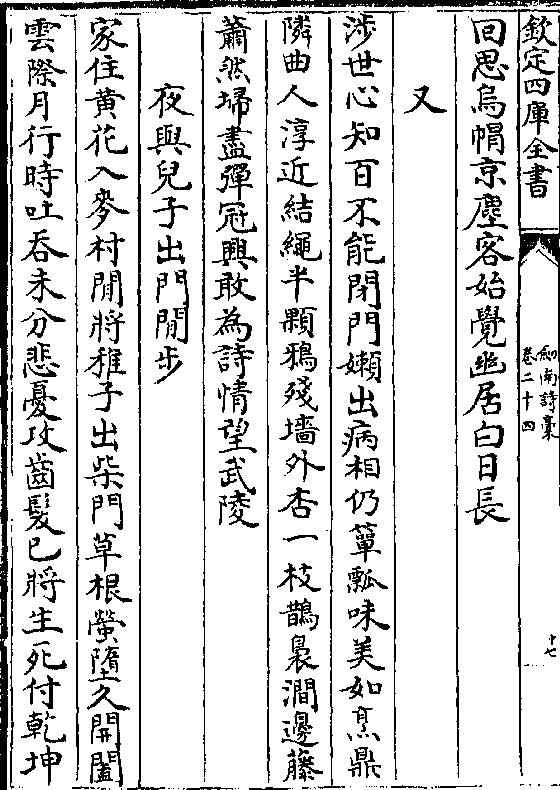 欽定四庫全書
劍南詩稾
卷二十四
十七
回思烏㡌京塵客始覺幽居白日長
又
涉世心知百不能閉門嬾出病相仍簞瓢味美如烹鼎
隣曲人淳近結繩半顆鴉殘墻外杏一枝鵲裊澗邊藤
蕭然埽盡彈冠興敢為詩情望武陵
夜與兒子出門閒步
家住黄花入麥村閒將稚子出柴門草根螢墮久開闔
雲際月行時吐吞未分悲憂攻齒髮已將生死付乾坤